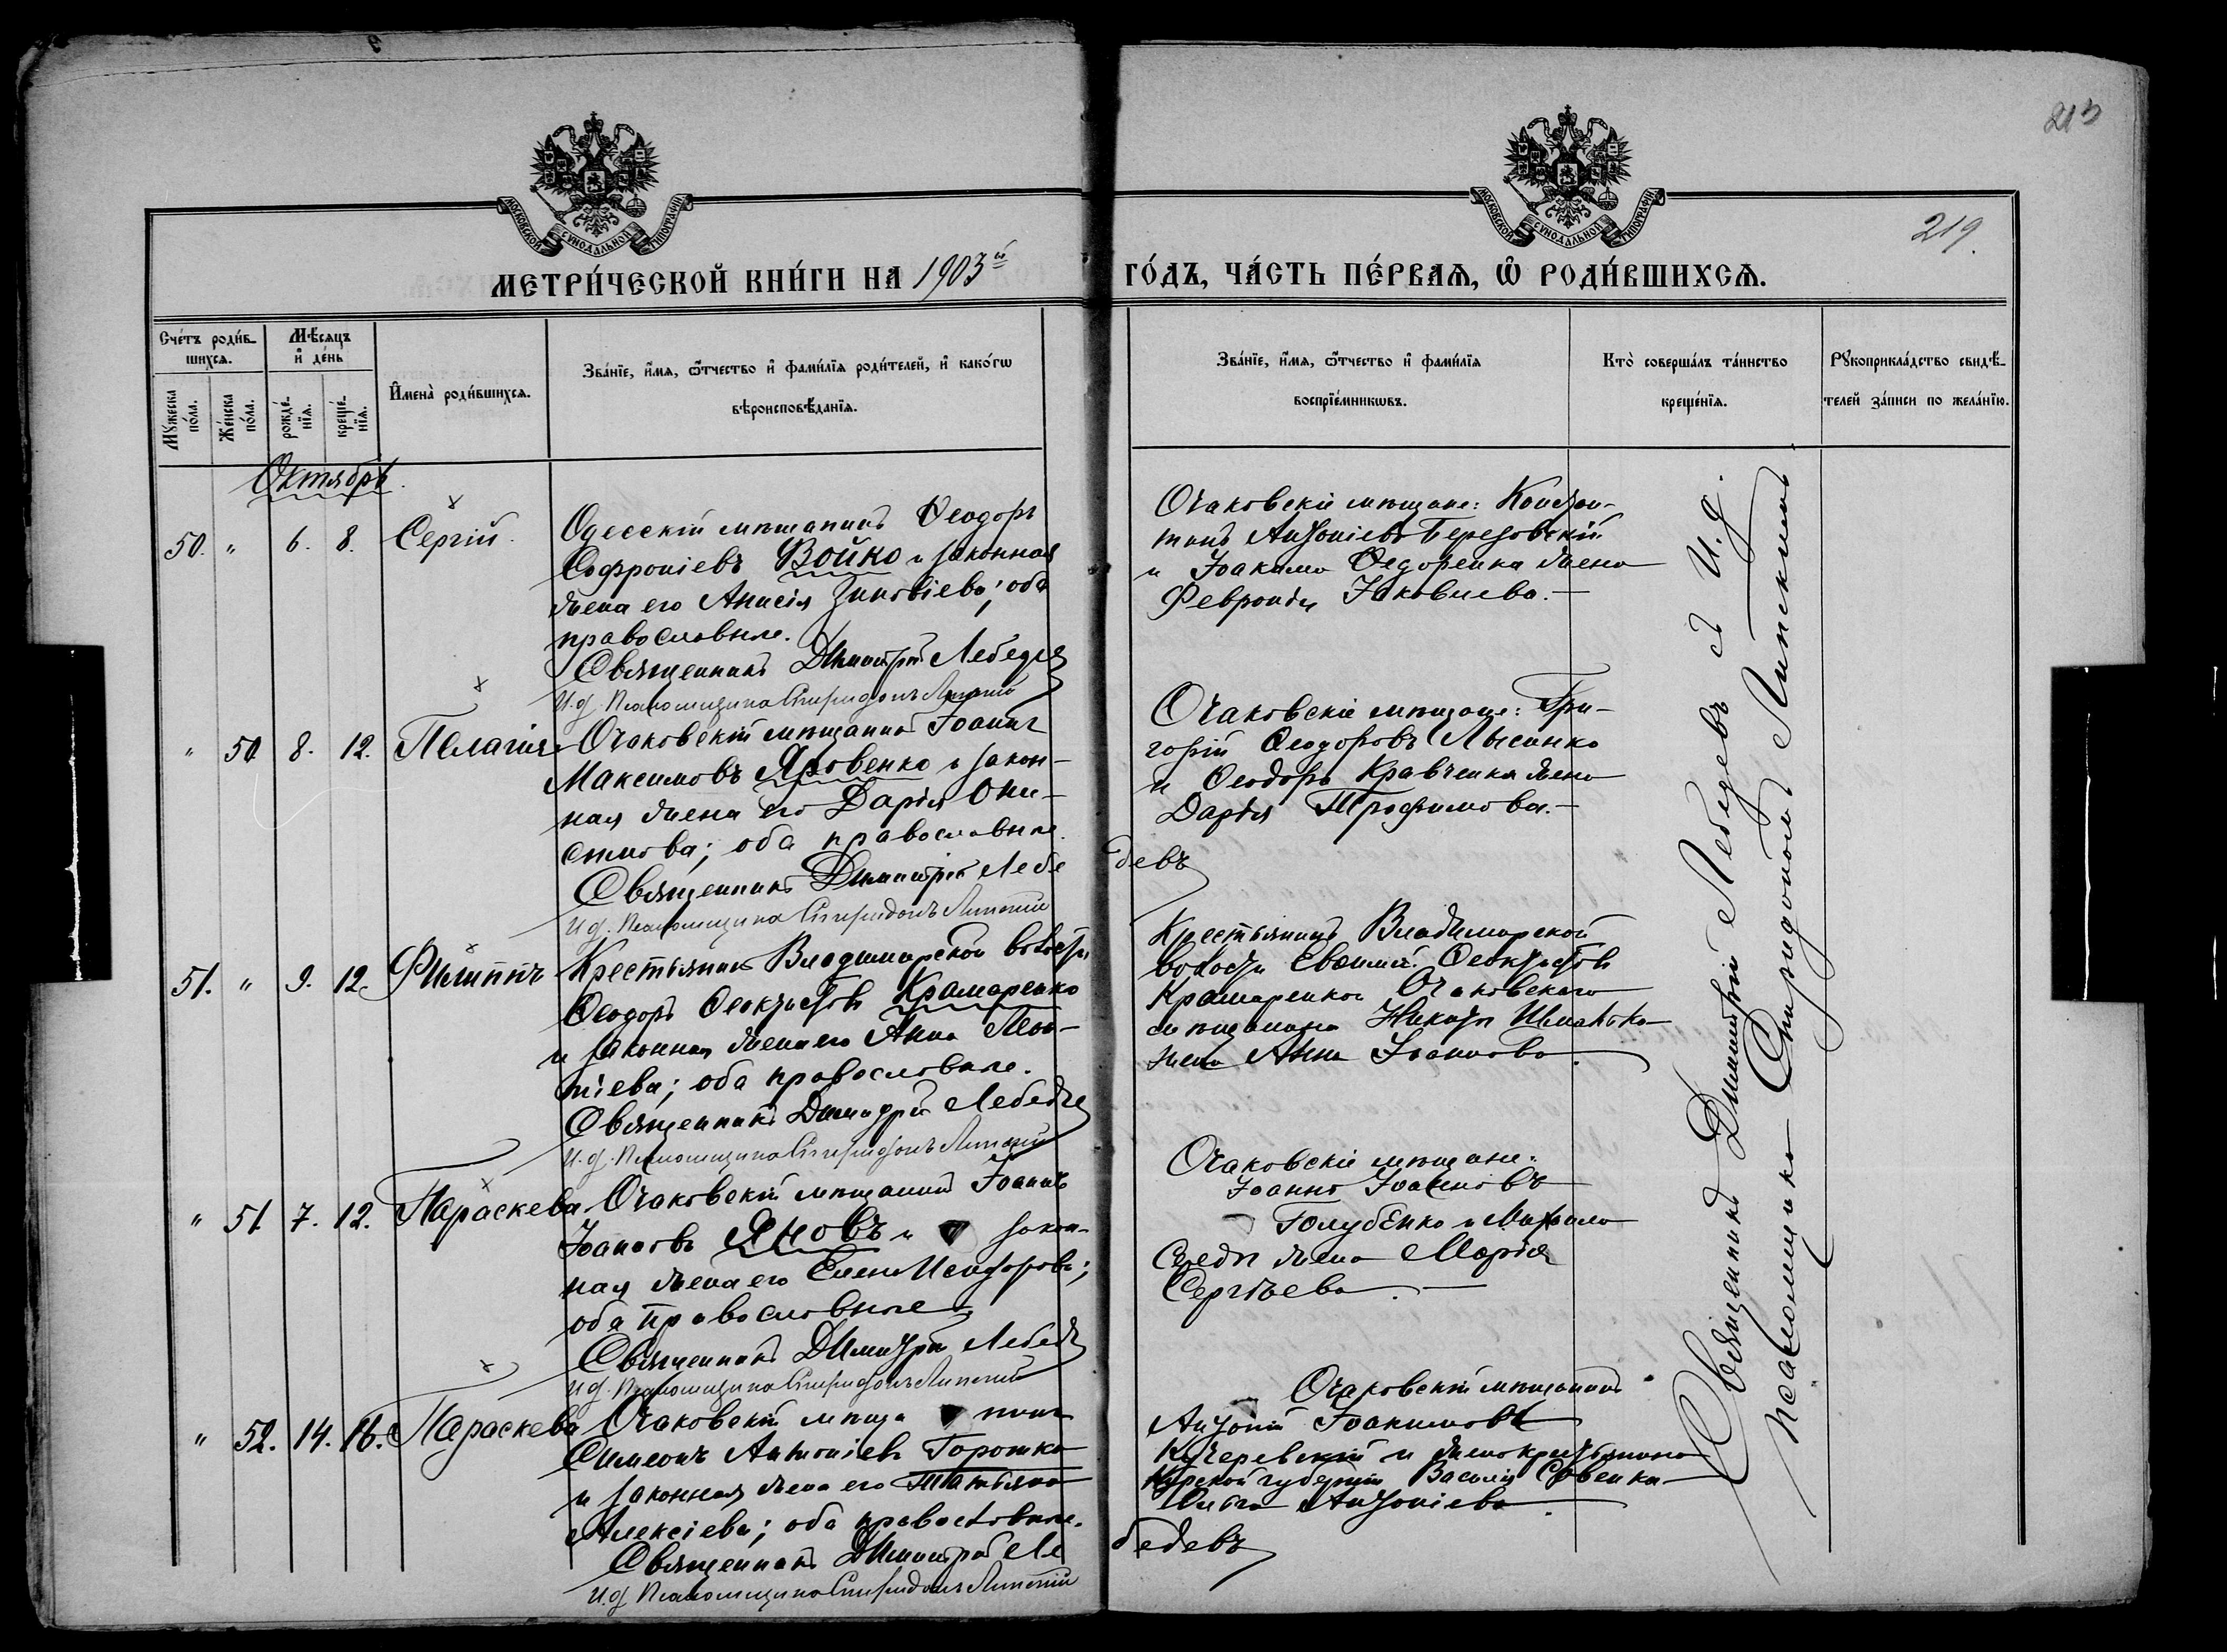 213
219.
МОСКОВСКОЙ СѴНОДАЛЬНОЙ ТИПОГРАФІИ
МОСКОВСКОЙ СѴНОДАЛЬНОЙ ТИПОГРАФІИ
МЕТРИ́ЧЕСКОЙ КНИ́ГИ НА 1903й ГО́ДЪ, ЧА́СТЬ ПЕ́РВАѦ, Ѽ РОДИ́ВШИХСѦ.
Сче́тъ роди́в-
шихсѧ.
Мѣ́сѧцъ
и҆ де́нь
Мꙋ́жеска
по́ла.
Же́нска
по́ла.
рожде́-
нїѧ.
креще́-
нїѧ.
И҆мена̀ роди́вшихсѧ.
Зва́нїе, и҆́мѧ, ѻ҆́тчество и҆ фами́лїѧ роди́телей, и҆ како́гѡ
вѣроисповѣ́данїѧ.
Зва́нїе, и҆́мѧ, ѻ҆́тчество и҆ фами́лїѧ
воспрїе́мникѡвъ.
Кто̀ соверша́лъ та́инство
креще́нїѧ.
Рꙋкоприкла́дство свидѣ́-
телей за́писи по жела́нїю.
Октябрь.
50. " 6. 8. Сергій.
Одесскій мѣщанинъ Ѳеодоръ
Софроніевъ Войко и законная
жена его Анисія Зиновіева; оба
православные.
Священникъ Димитрій Лебедев
И.д. Псаломщика Спиридонъ Липскій
Очаковскіе мѣщане: Констан-
тинъ Антоніевъ Березовскій
и Іоакима Ѳедоренка жена
Февронія Іаковлева.
" 50 8. 12. Пелагія
Очаковскій мѣщанинъ Іоаннъ
Максимовъ Яровенко и закон-
ная жена его Дарія Они-
симова; оба православные.
Священникъ Димитрій Лебе
девъ
И.д. Псаломщика Спиридонъ Липскій
Очаковскіе мѣщане: Гри-
горій Ѳеодоровъ Лысенко
и Ѳеодора Кравченка жена
Дарія Трофимова.
51. " 9. 12. Филиппъ
Крестьянинъ Владимирской волости
Ѳеодоръ Ѳеоктистовъ Крамаренко
и законная жена его Анна
тіева; оба православные.
Священникъ Димитрій Лебедев
И.д. Псаломщика Спиридонъ Липскій
Крестьянинъ Владимирской
волости Евѳимій Ѳеоктистовъ
Крамаренко и Очаковскаго
мѣщанина Никиты
жена Анна Іоаннова.
" 51 7. 12. Параскева
Очаковскій мѣщанинъ Іоаннъ
Іоанновъ Яновъ и закон-
ная жена его Елена Исидорова;
оба православные
Священникъ Димитрій Лебедев
И.д. Псаломщика Спиридонъ Липскій
Очаковскіе мѣщане:
Іоаннъ Іоанновъ
Голубенко и Михаила
жена Марія
Сергіева.
" 52. 14. 16. Параскева
Очаковскій мѣща нинъ
Симеонъ Антоніевъ Горошко
и законная жена его Татьяна
Алексіева; оба православные.
Священникъ Димитрій Ле
бедевъ
И.д. Псаломщика Спиридонъ Липскій
Очаковскій мѣщанинъ
Антоній Іоакимовъ
Кучеревскій и жена крестьянина
Курской губерніи Василія Совенка
Ольга Антоніева.
Священникъ Димитрій Лебедевъ с И.д.
псаломщика Спиридономъ Липскимъ